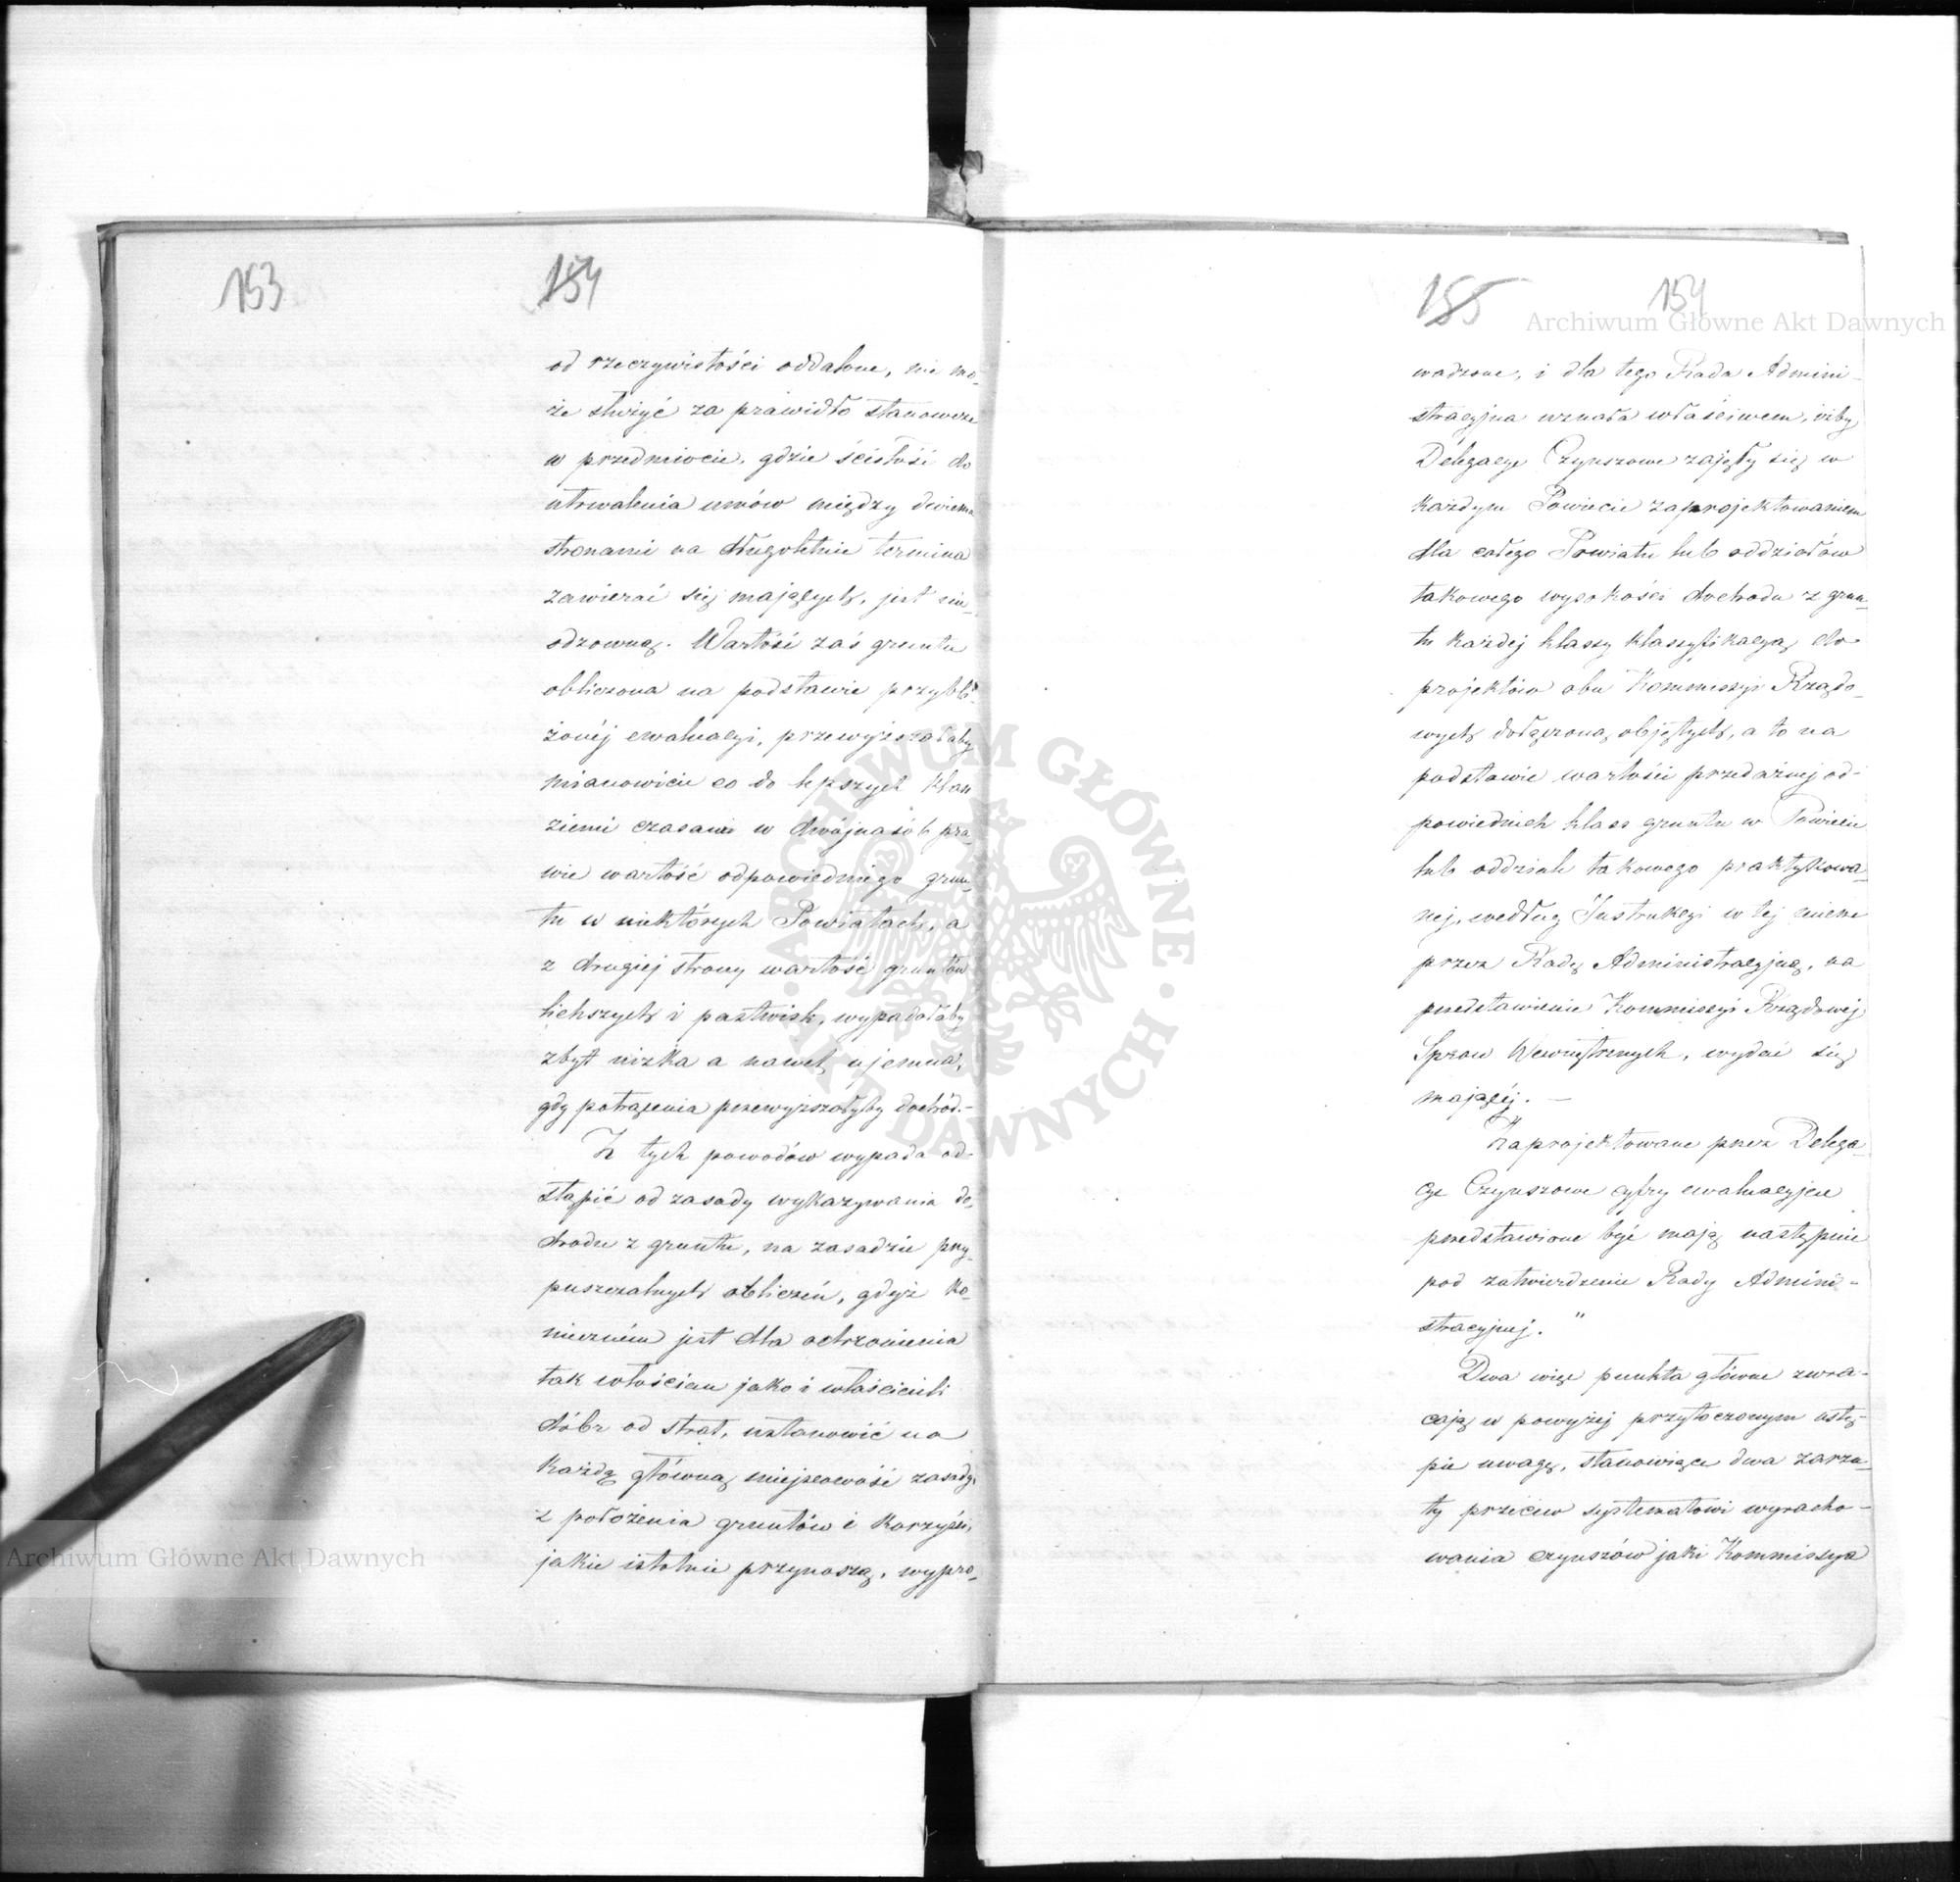 153
154
od rzeczywistości oddalone, nie mo-
że służyć za prawidło stanowcze
w przedmiocie, gdzie ścisłość do
utrwalenia umów między dwiema
stronami na długoletnie termina
zawierać się mających, jest nie-
odzowną. Wartość zaś gruntu
obliczona na podstawie przybli-
żonéj ewaluacyi, przewyższałaby
mianowicie co do lepszych klass
ziemi czasami w dwójnasób pra-
wie wartość odpowiedniego grun-
tu w niektórych Powiatach, a
z drugiej strony wartość gruntów
lichszych i pastwisk, wypadałaby
zbyt nizka a nawet ujemna,
gdy potrącenia przewyższałyby dochód.-
Z tych powodów wypada od-
stąpić od zasady wykazywania do-
chodu z gruntu, na zasadzie przy-
puszczalnych obliczeń, gdyż ko-
nieczném jest dla ochronienia
tak włościan jako i właścicieli
dóbr od strat, ustanowić na
każdą główną miejscowość zasady,
z położenia gruntów i korzyści,
jakie istotnie przynoszą, wypro-
155
154
wadzone, i dla tego Rada Admini-
stracyjna uznała właściwem, iżby
Delegacye Czynszowe zajęły się w
każdym Powiecie zaprojektowaniem
dla całego Powiatu lub oddziałów
takowego wysokości dochodu z grun-
tu każdej klassy klassyfikacyą do
projektów obu Kommissyi Rządo-
wych dołączoną objętych, a to na
podstawie wartości przedażnej od-
powiednich klass gruntu w Powiecie
lub oddziale takowego praktykowa-
nej, według Instrukcyi w tej mierze
przez Radę Administracyjną, na
przedstawienie Kommissyi Rządowej
Spraw Wewnętrznych, wydać się
mającéj. —
Zaprojektowane przez Delega-
cye Czynszowe cyfry ewaluacyjne
przedstawione być mają następnie
pod zatwierdzenie Rady Admini-
stracyjnej. "
Dwa więc punkta główne zwra-
cają w powyżej przytoczonym ustę-
pie uwagę, stanowiące dwa zarzu-
ty przeciw systematowi wyracho-
wania czynszów jaki Kommissya
Archiwum Główne Akt Dawnych
Archiwum Główne Akt Dawnych
ARCHIWUM GŁÓWNE · AKT DAWNYCH ·